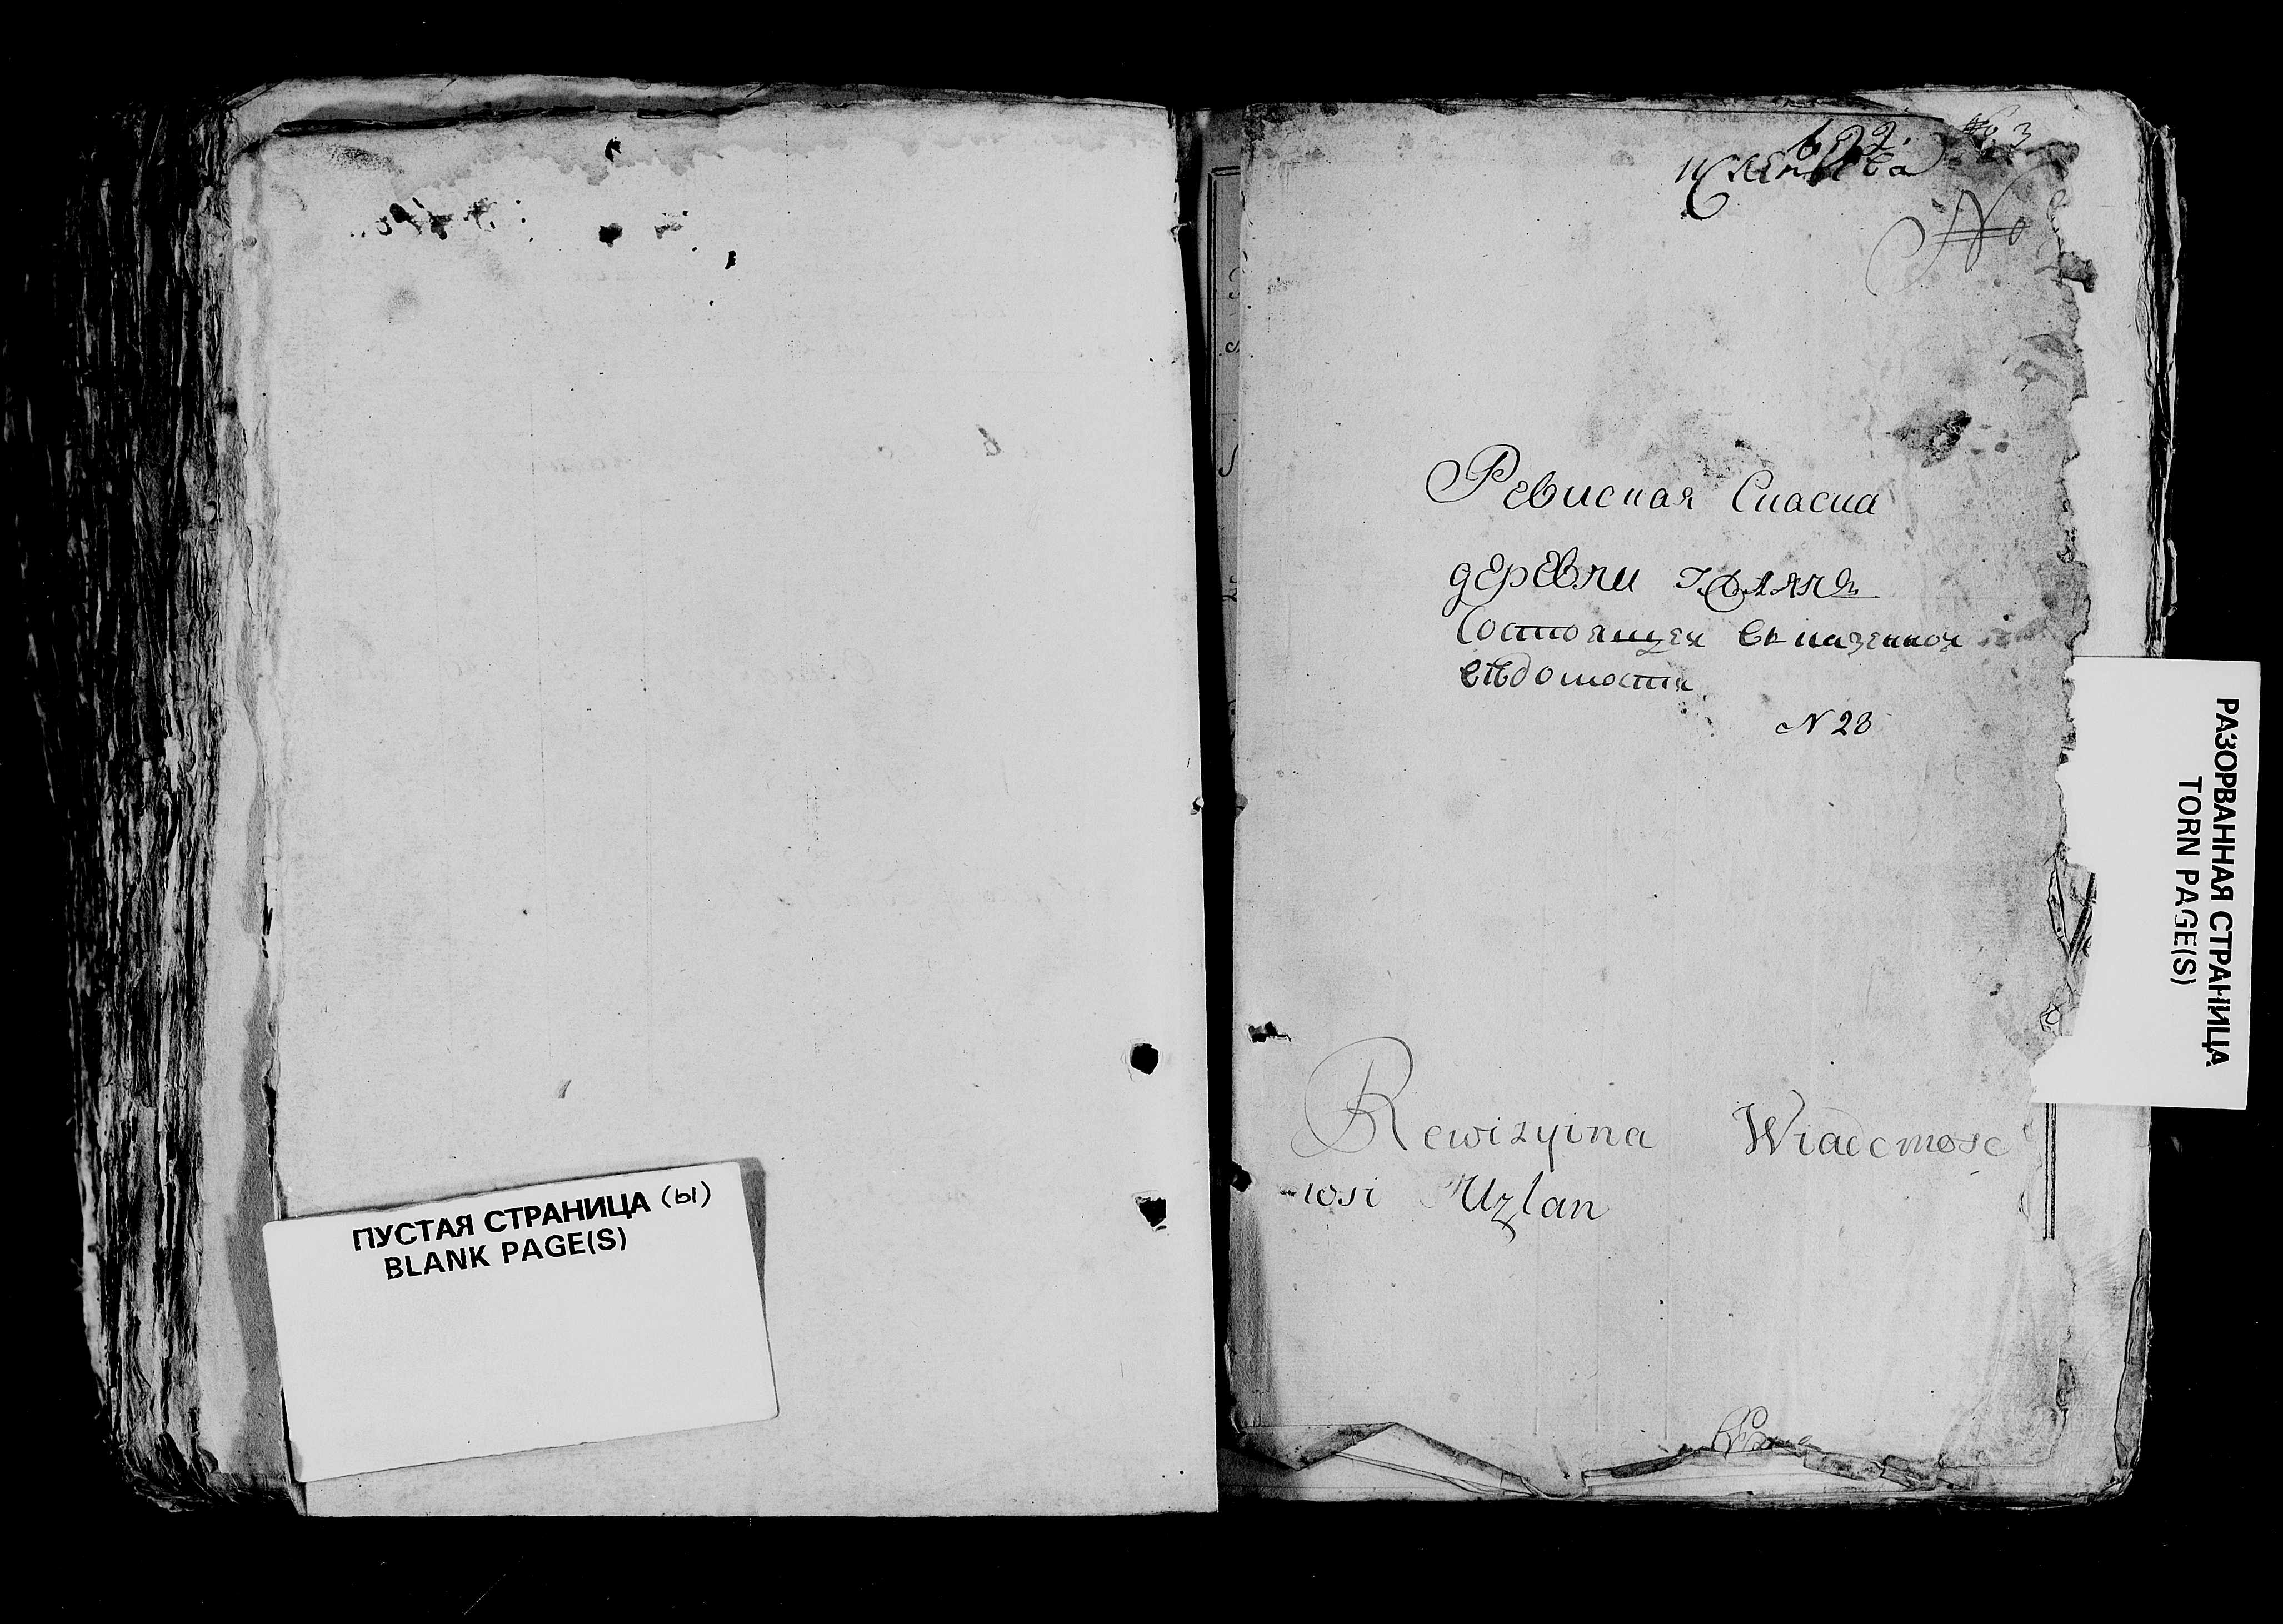 ПУСТАЯ СТРАНИЦА (ы)
BLANK PAGE(S)
622.
№ 3
№
Ревиская Скаска
деревни
Состоящей въ казенной
вѣдомости
N 28
Rewizyina Wiadomosc
wsi Uzlan
РАЗОРВАННАЯ СТРАНИЦА
TORN PAGE(S)